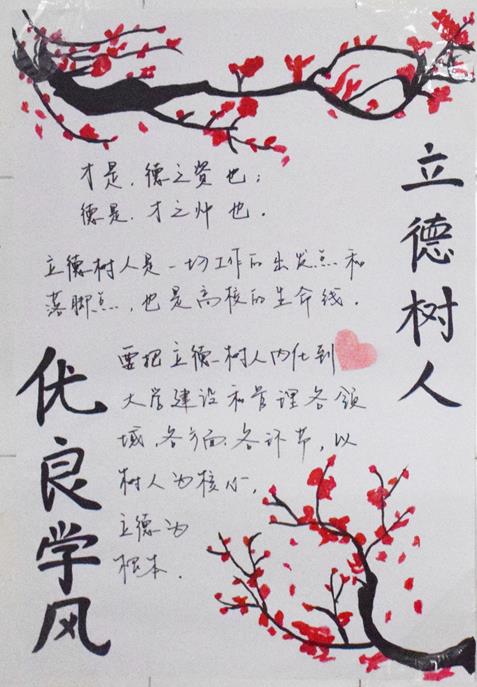 立德树人
才是,德之资也;
德是,才之帅也.
立德树人是一切工作的出发点和
落脚点,也是高校的生命线.
要把立德树人内化到
大学建设和管理各领
域、各方面、各环节,以
树人为核心,
立德为
根本.
优良学风